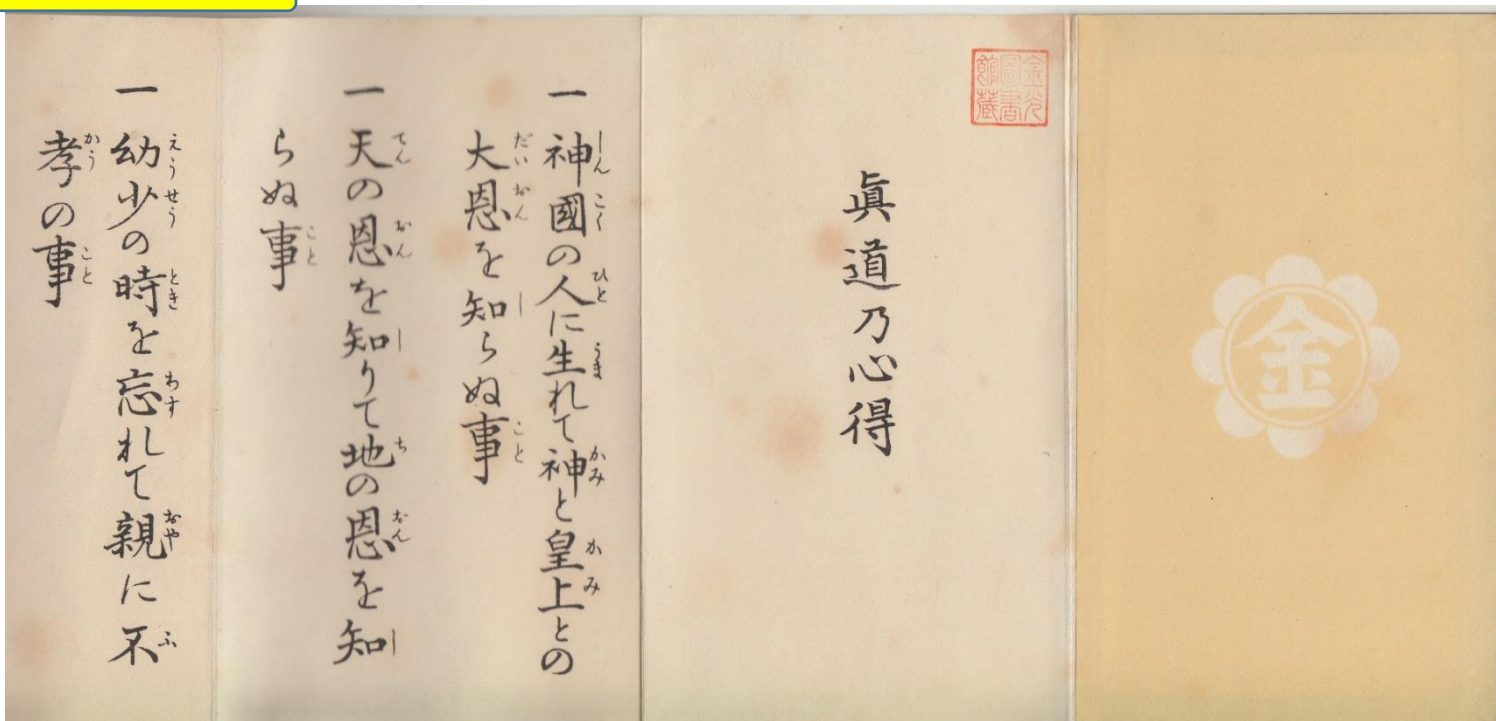 金
金光
圖書
館蔵
眞道乃心得
一 神國の人に生れて神と皇上との
大恩を知らぬ事
一 天の恩を知りて地の恩を知
らぬ事
一 幼少の時を忘れて親に不
孝の事